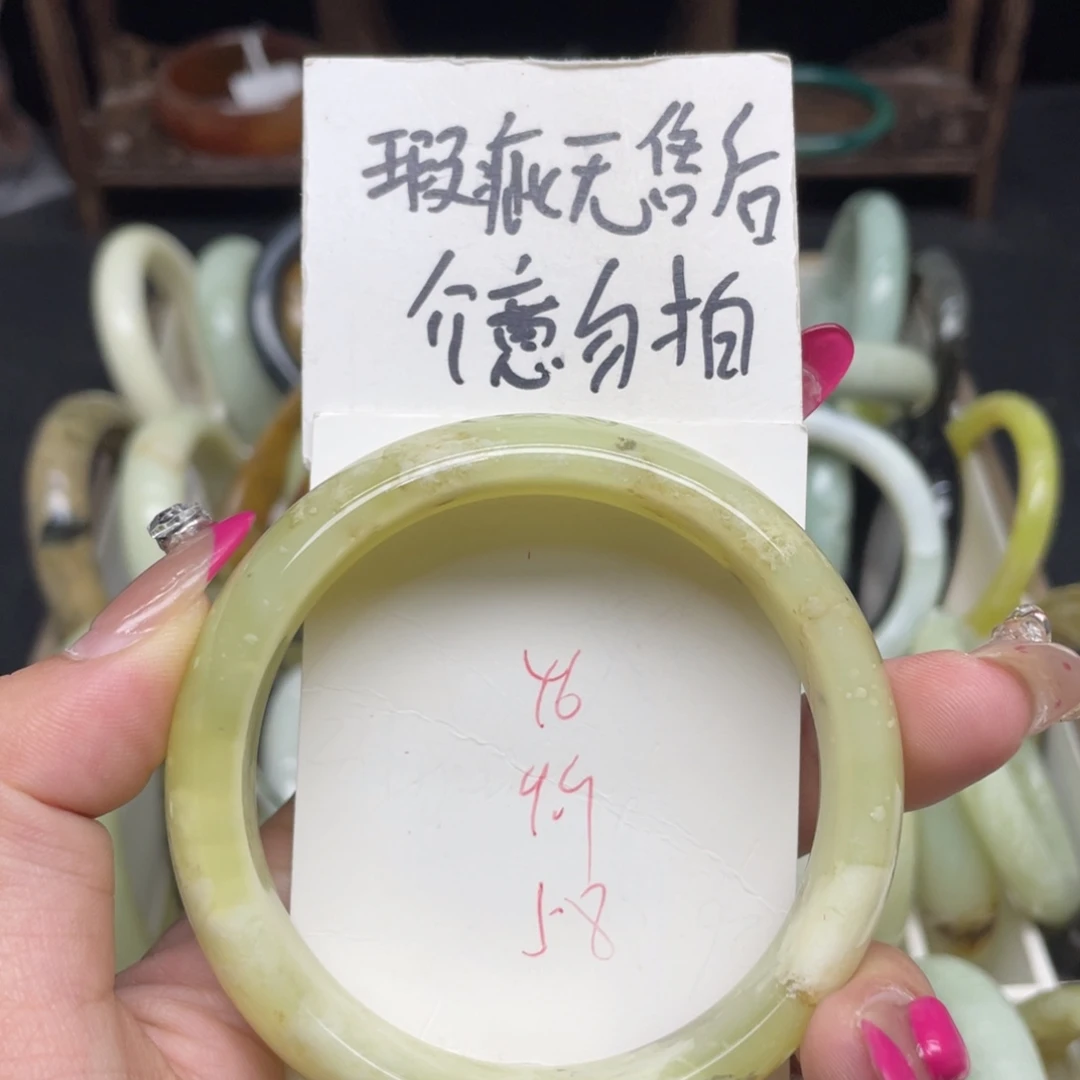 瑕疵无售后
介意勿拍
46
49
58